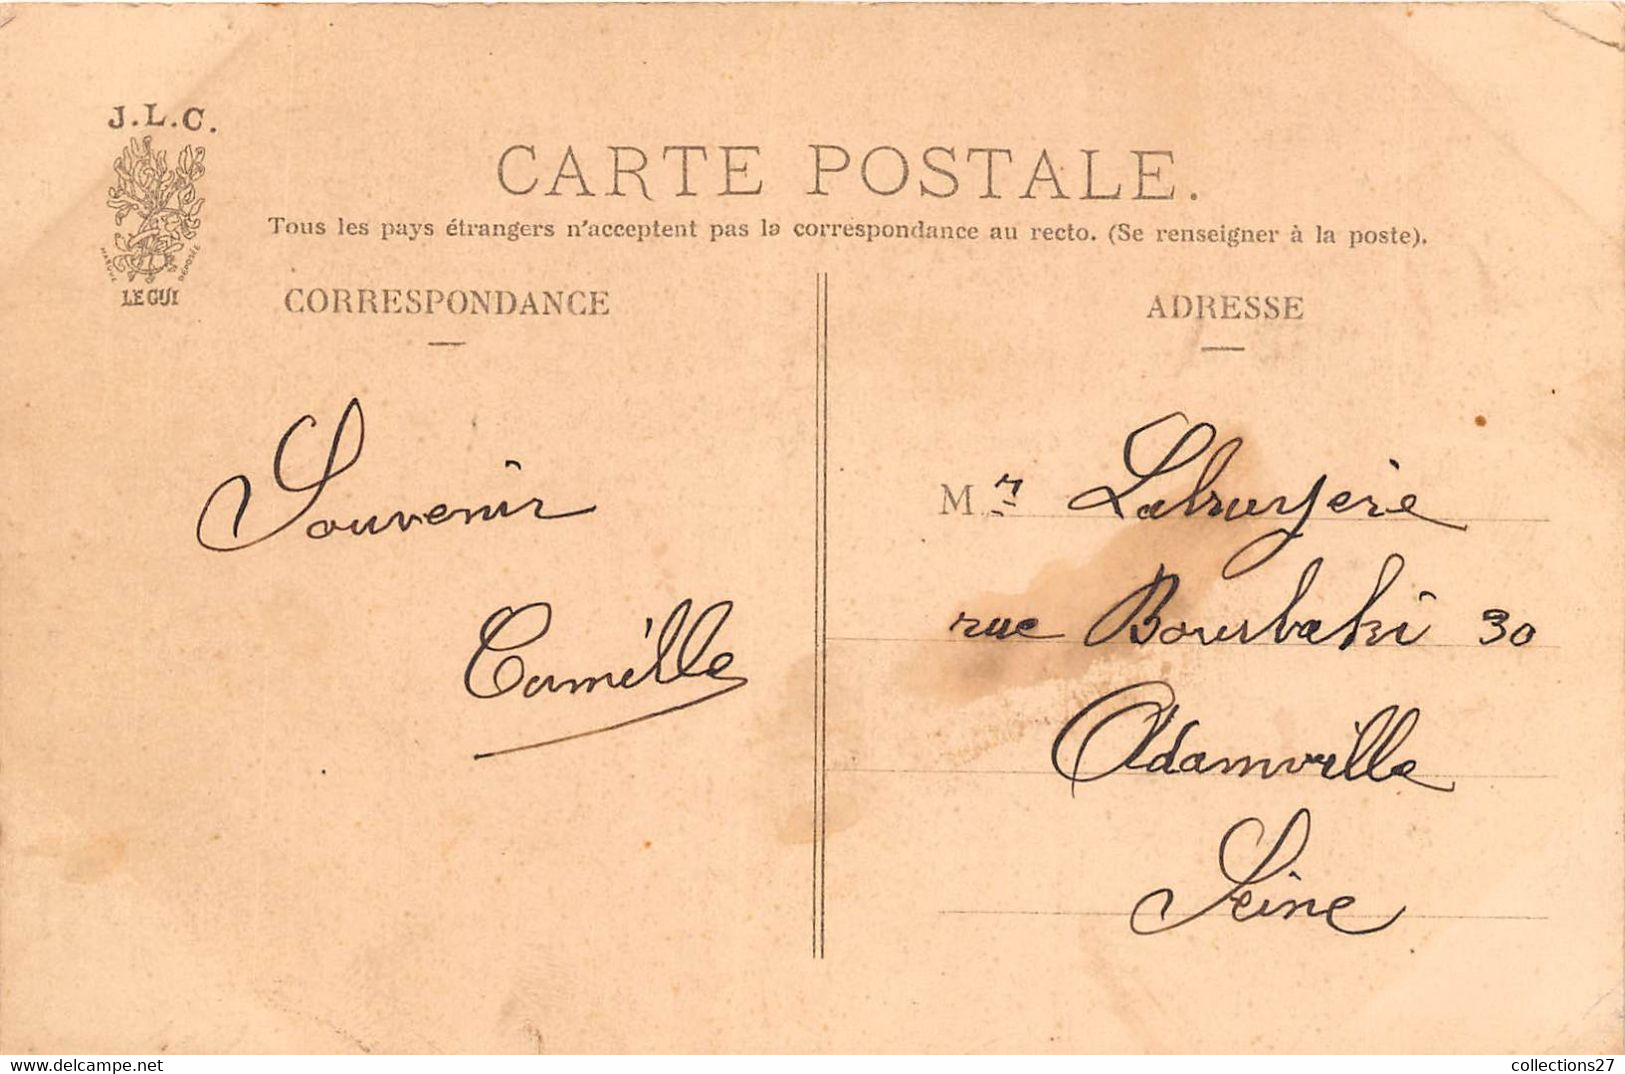 J.L.C.
MARQUE DÉPOSÉE
LE GUI
CARTE POSTALE.
Tous les pays étrangers n'acceptent pas la correspondance au recto. (Se renseigner à la poste).
CORRESPONDANCE
Souvenir
Camille
ADRESSE
Mr Labruyère
rue Bourbaki 30
Adamville
Seine
www.delcampe.net
collections27